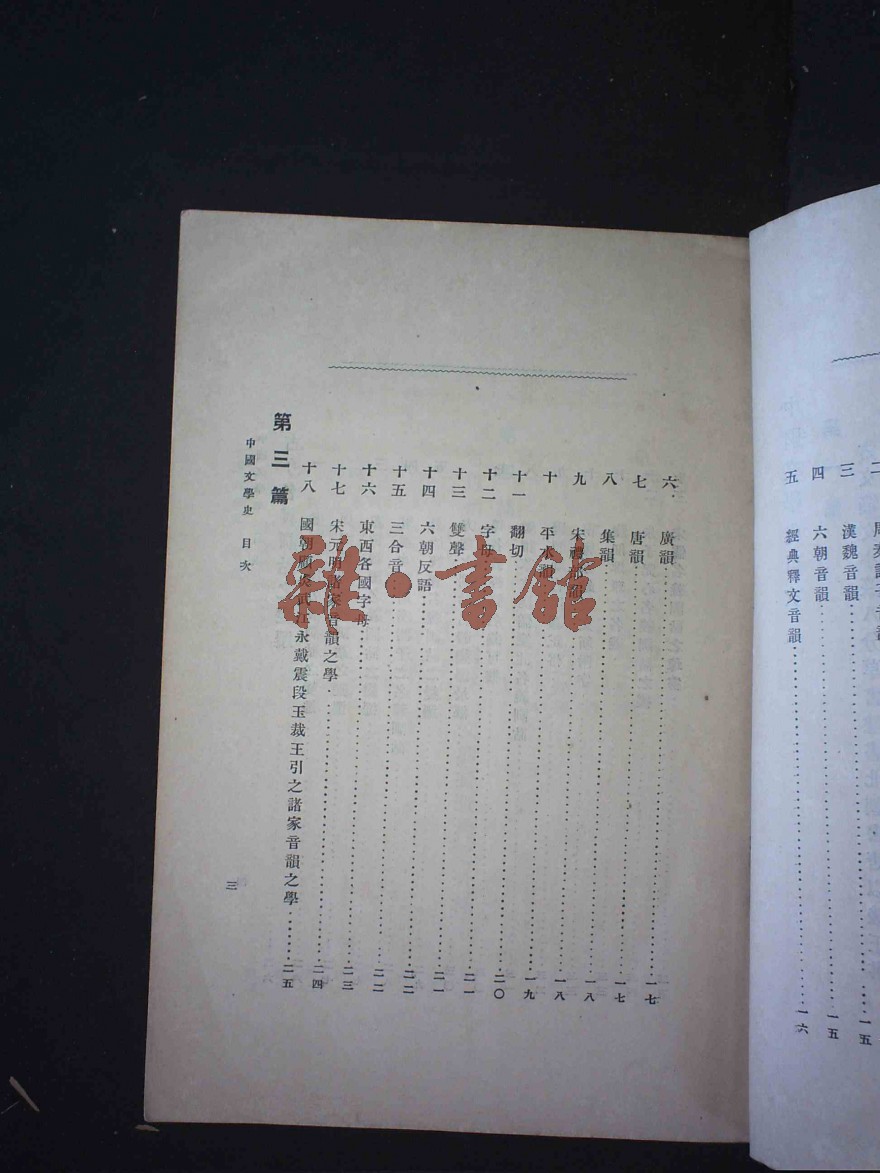 三 漢魏音韻 一五
四 六朝音韻 一五
五 經典釋文音韻 一六
六 廣韻 一七
七 唐韻 一七
八 集韻 一八
九 宋禮部韻 一八
十 平水韻 一九
十一 翻切 二〇
十二 字母 二一
十三 雙聲 二一
十四 六朝反語 二二
十五 三合音 二二
十六 東西各國字母 二三
十七 宋元明諸家音韻之學 二四
十八 國朝顧炎武江永戴震段玉裁王引之諸家音韻之學 二五
第三篇
中國文學史 目次 三
雜·書館